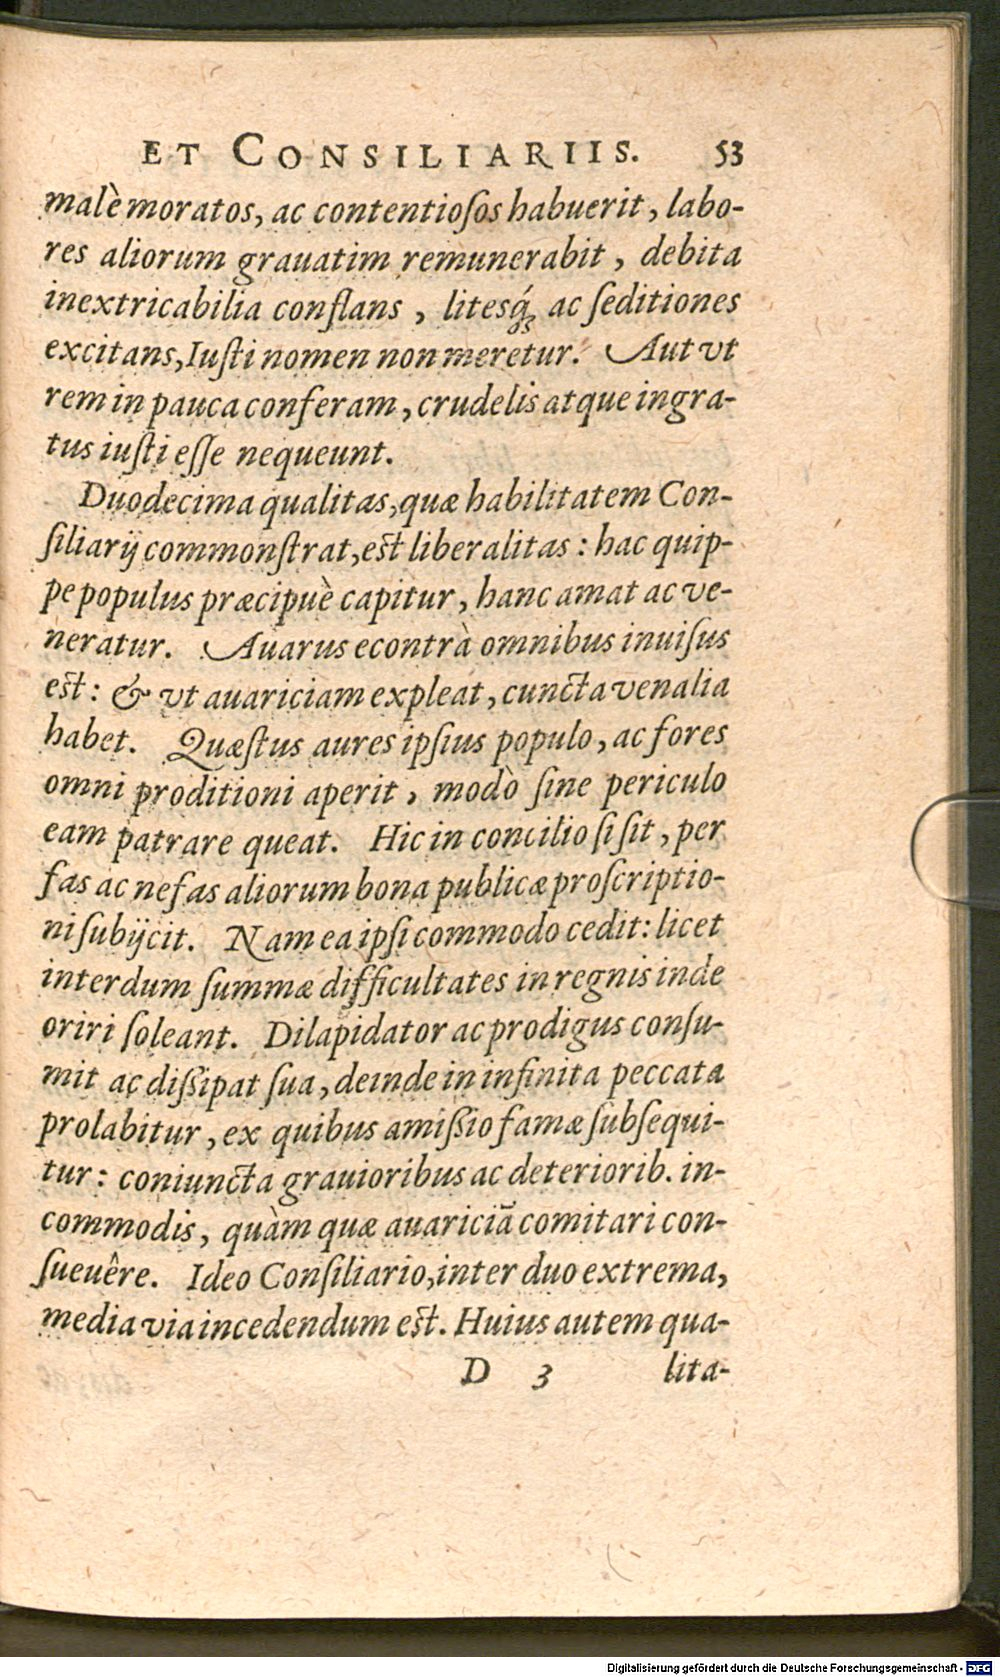 ET CONSILIARIIS. 53
malè moratos, ac contentioſos habuerit, labo-
res aliorum grauatim remunerabit, debita
inextricabilia conflans, litesq́; ac ſeditiones
excitans, Iuſti nomen non meretur. Aut vt
rem in pauca conferam, crudelis atque ingra-
tus iuſti eſſe nequeunt.
Duodecima qualitas, quæ habilitatem Con-
ſiliarij commonſtrat, eſt liberalitas: hac quip-
pe populus præcipuè capitur, hanc amat ac ve-
neratur. Auarus econtrà omnibus inuiſus
eſt: & vt auariciam expleat, cuncta venalia
habet. Quæſtus aures ipſius populo, ac fores
omni proditioni aperit, modò ſine periculo
eam patrare queat. Hic in concilio ſi ſit, per
fas ac nefas aliorum bona publicæ proſcriptio-
ni ſubijcit. Nam ea ipſi commodo cedit: licet
interdum ſummæ difficultates in regnis inde
oriri ſoleant. Dilapidator ac prodigus conſu-
mit ac diſſipat ſua, deinde in infinita peccata
prolabitur, ex quibus amiſſio famæ ſubſequi-
tur: coniuncta grauioribus ac deteriorib. in-
commodis, quàm quæ auariciā comitari con-
ſueuêre. Ideo Conſiliario, inter duo extrema,
media via incedendum eſt. Huius autem qua-
D 3 lita-
Digitalisierung gefördert durch die Deutsche Forschungsgemeinschaft - DFG